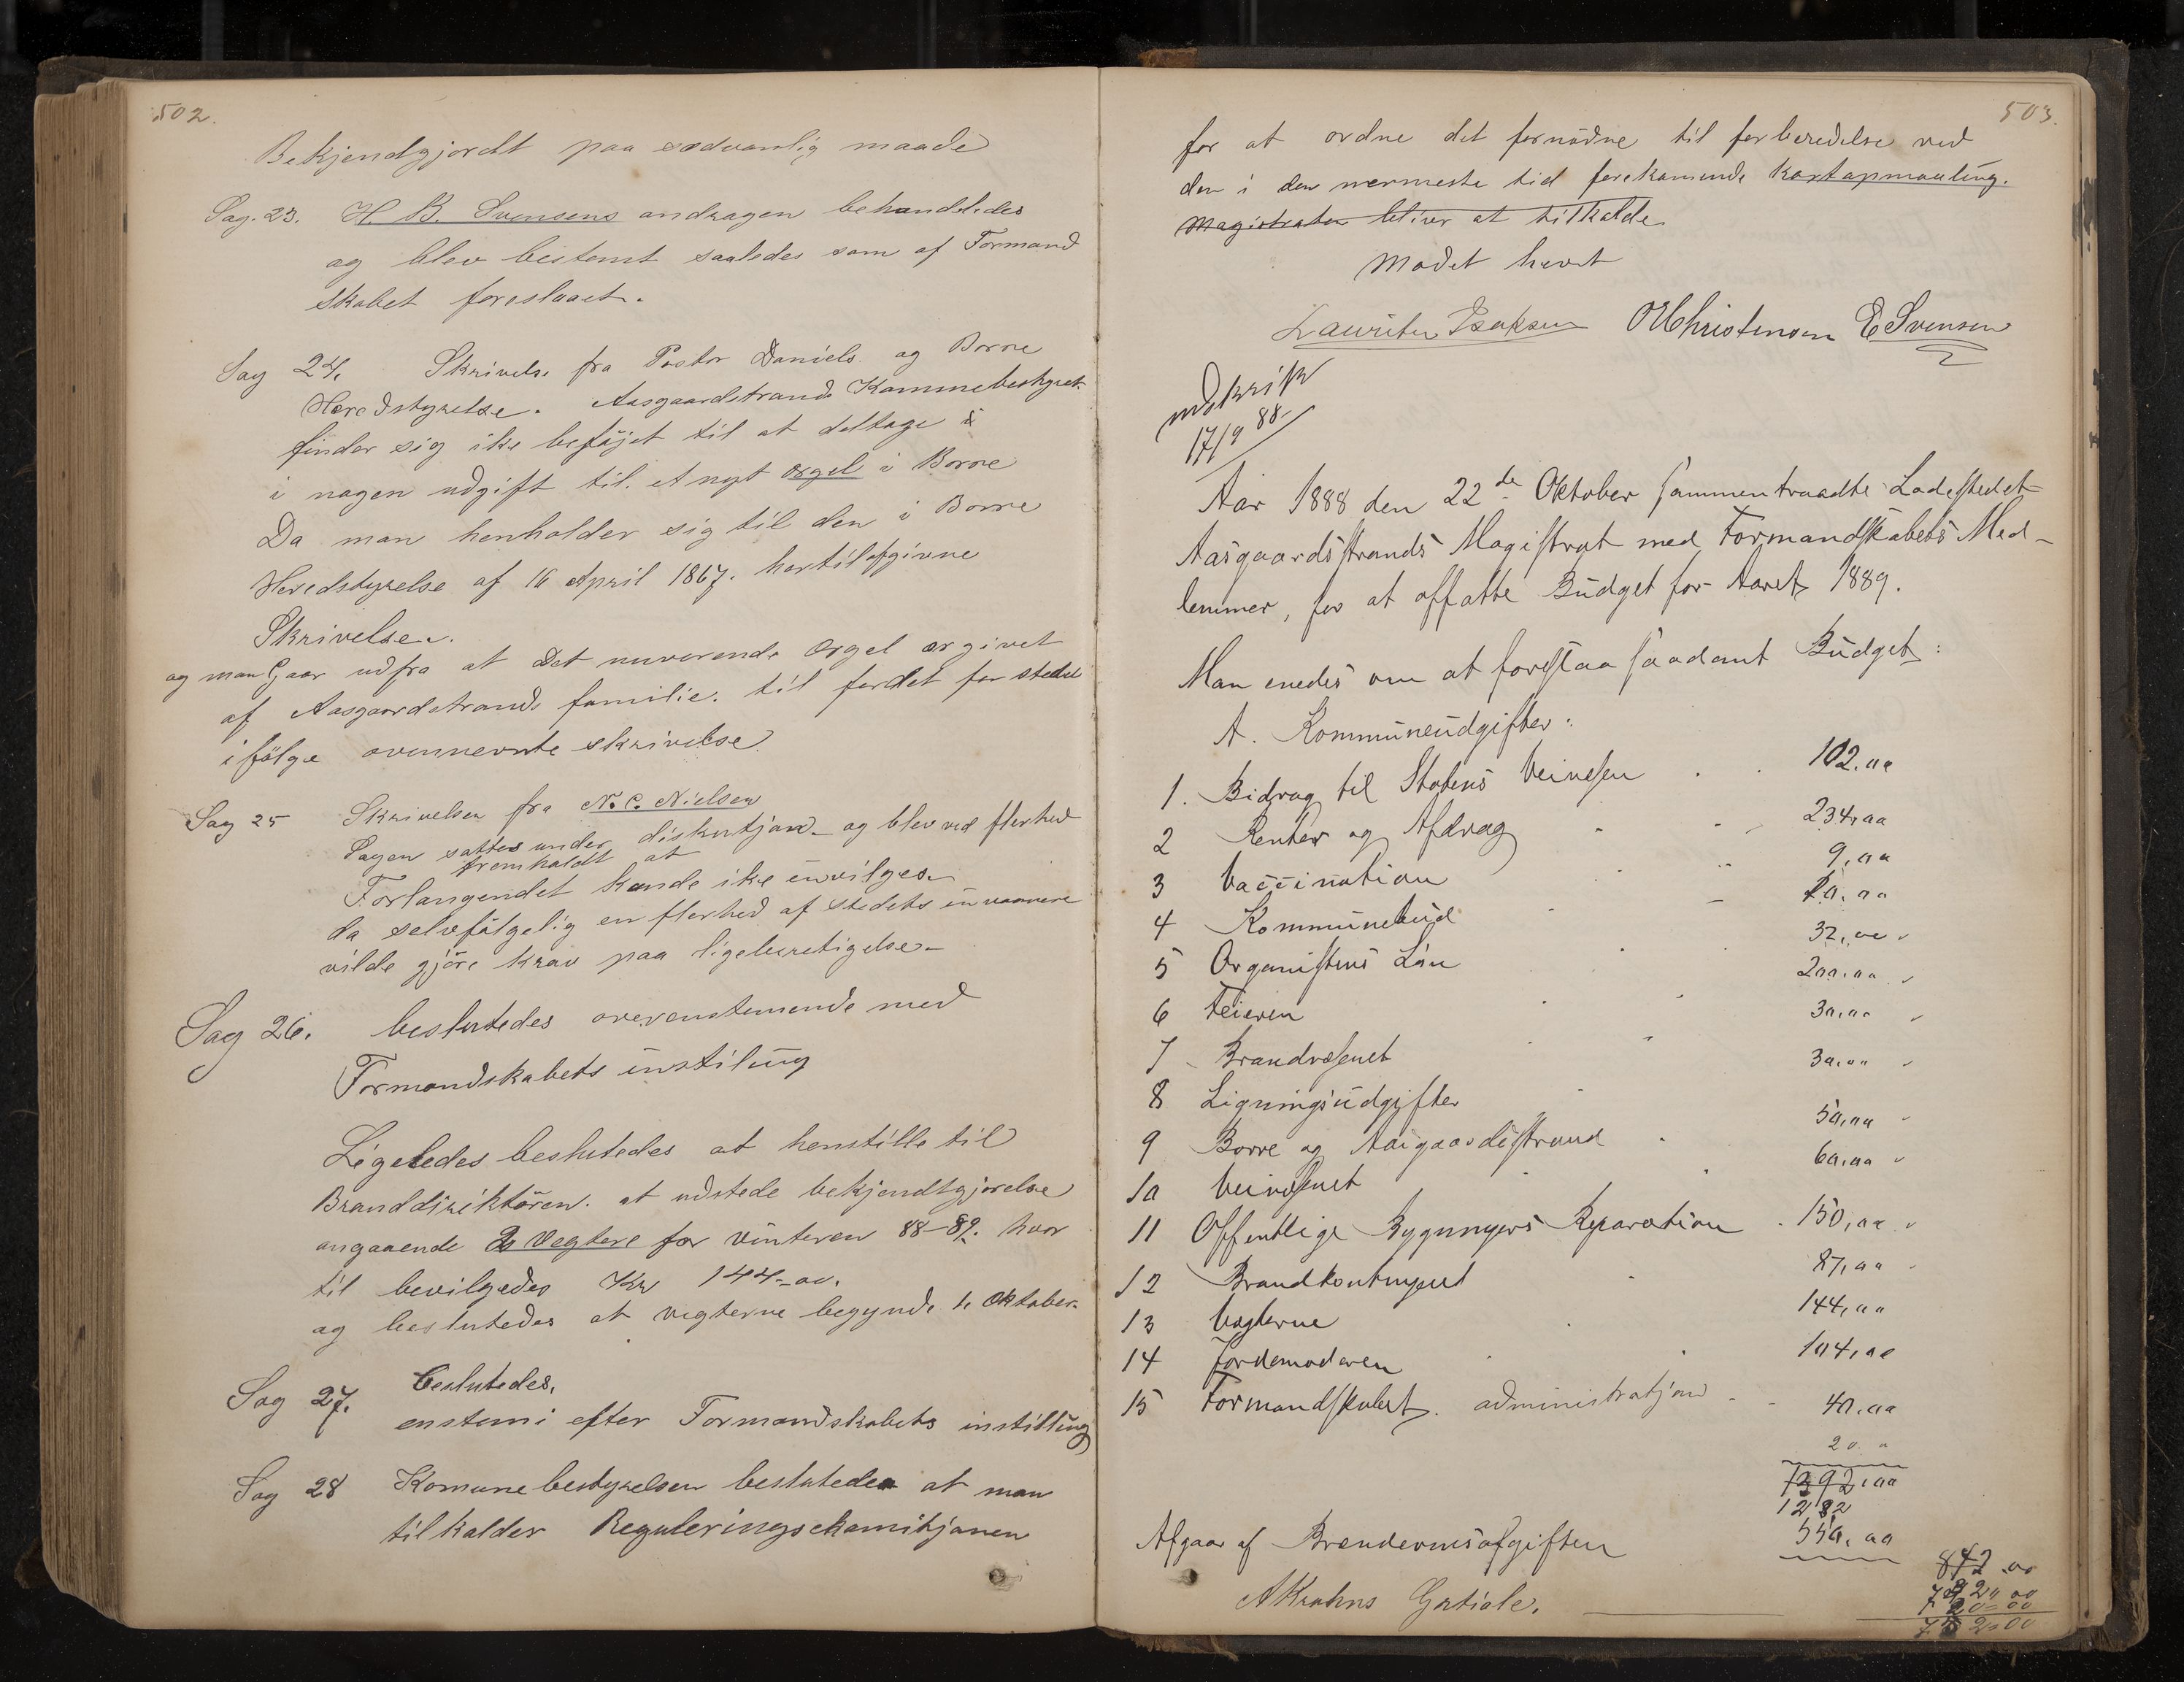 502.
Bekjendgjordt paa sædvanlig maade
Sag. 23. H. B. Svensens andragen behandledes
og blev bestemt saaledes som af Formand
skabet foreslaaet.
Sag 24. Skrivelse fra Pastor Daniels og Borre
Heredstyrelse. Aasgaardstrands Kommebestyrel.
finder sig ike beföjet til at deltage i
i nogen udgift til et nyt orgel i Borre
Da man henholder sig til den i Borre
Heredstyrelse af 16 April 1867. hertil afgivne
Skrivelse.
og man Gaar udfra at Det nuverende Orgel er givet
af Aasgaardstrands familie. til fordel for stedet
ifölge ovennevnte skrivelse.
Sag 25 Skrivelsen fra N. C. Nielsen
Sagen sattes under diskutjon og blev ved flerhed
fremholdt at
Forlangendet kunde ike invilges
da selvfölgelig en flerhed af Stedets invaanere
vilde gjöre krav paa ligeberetigelse
Sag 26. beslutedes overenstemende med
Formandskabets instiling
Ligeledes beslutedes at henstille til
Branddirektören. at udstede bekjendtgjørelse
angaaende 2 Vegtere for vinteren 88-89. hvor
til bevilgedes Kr 144-00.
og beslutedes at vegterne begynde 1. Oktober
Sag 27. beslutedes.
enstemi efter Formandskabets instilling
Sag 28 Komunebestyrelsen beslutede at man
tilkalder Reguleringsckomitjonen
503.
for at ordne det fornödne til forberedelse ved
den i den nermeste tid forekomende Kartopmaaling.
Magistraten bliver at tilkalde
Mødet hevet
Lauritz Isaksen O Christensen E Svensen
udskrift
17/9 88
Aar 1888 den 22de Oktober sammentraadte Ladestedet
Aasgaardsstrands Magistrat med Formandskabets Med-
lemmer, for at affatte Budget for Aaret 1889.
Man enedes om at foreslaa saadant Budget:
A. Kommuneudgifter:
1. Bidrag til Statens Veivesen 102.00
2 Renter og Afdrag 234,00
3 Vaccination 9,00
4 Kommunebud 20,00
5 Organistens Løn 32,00
6 Feieren 200,00
7 Brandvæsenet 30,00
8 Ligningsudgifter 30,00
9 Borre og Aasgaardsstrand 50,00
10 Veivæsenet 60,00
11 Offentlige Bygningers Reparation 150,00
12 Brandkontingent 87,00
13 Vægterne 144,00
14 Jordemoderen 104,00
15 Formandskabet. administratjon 40,00
20 "
1392,00
1282
Afgaar af Brændevinsafgiften 550,00
842.00
A Krohns Gratiale.